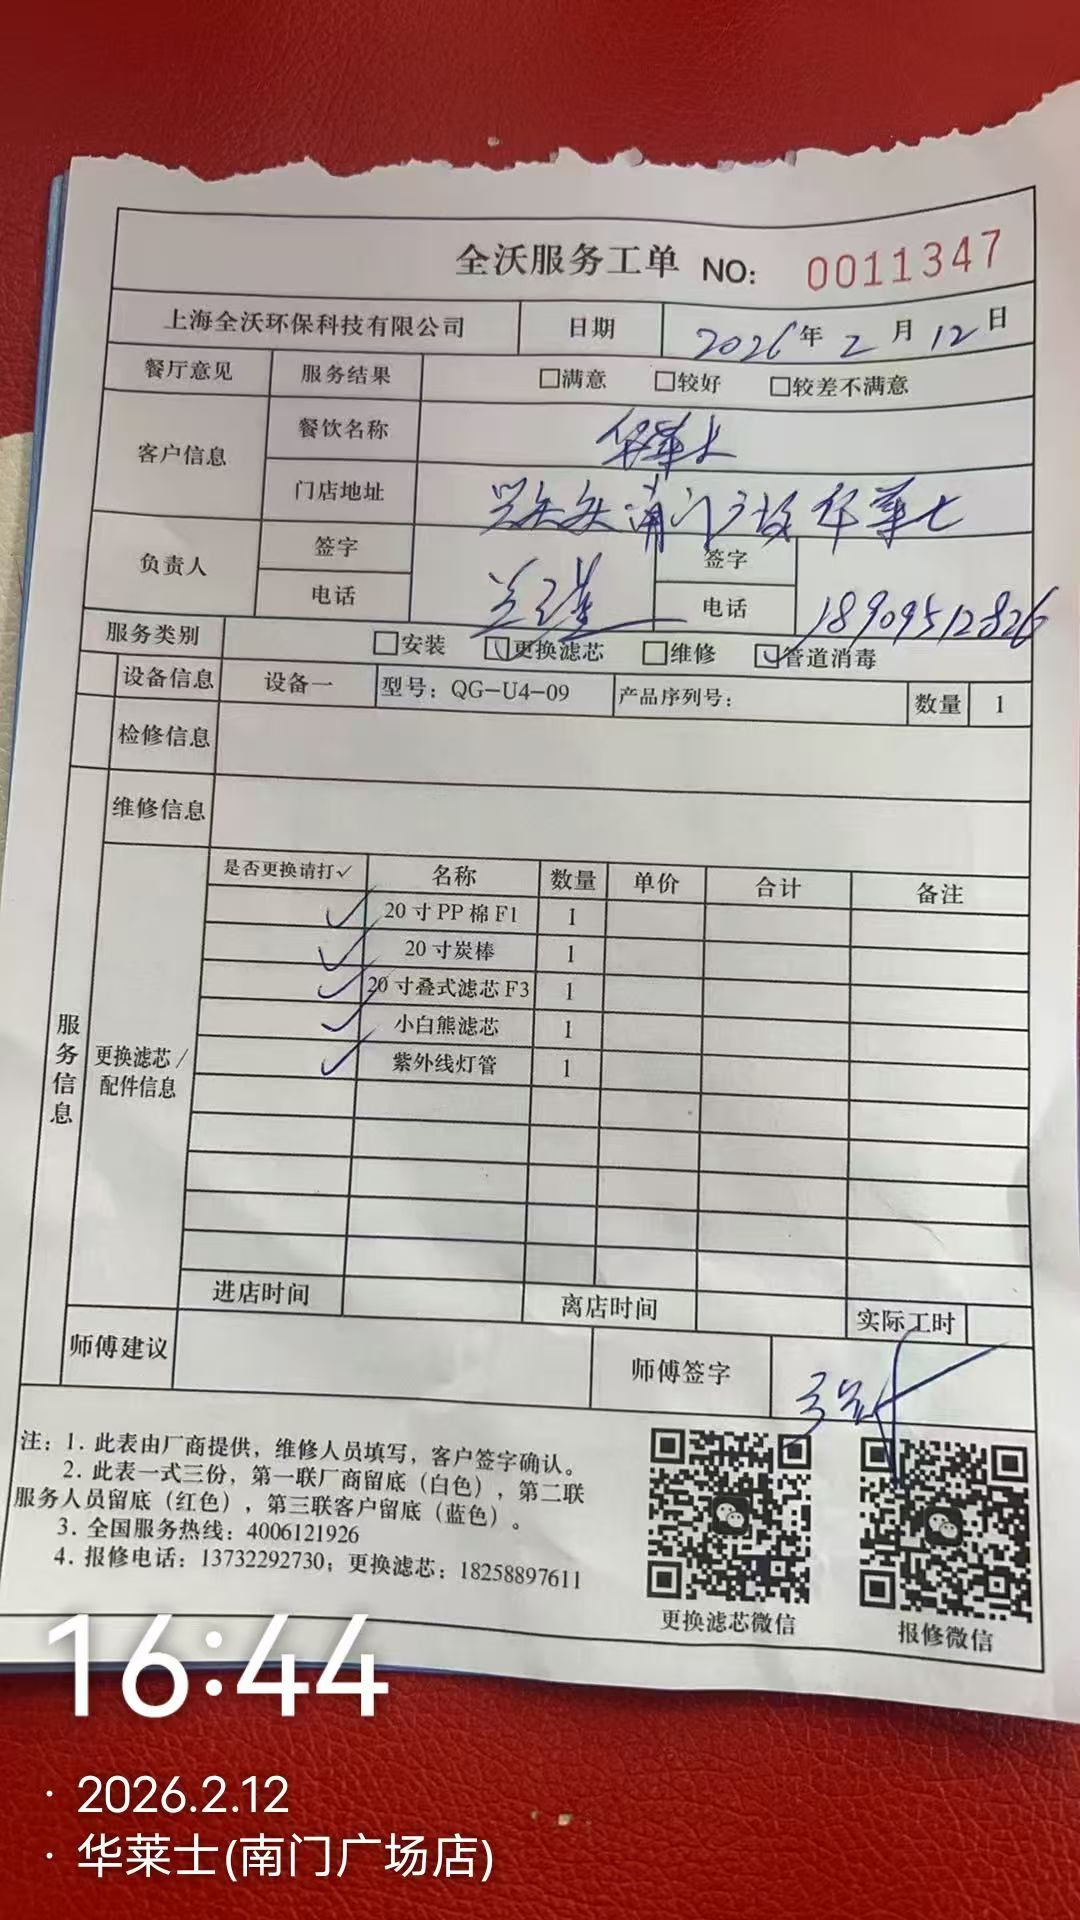 全沃服务工单 NO: 0011347
上海全沃环保科技有限公司 日期 2026年2月12日
餐厅意见 服务结果 □满意 □较好 □较差不满意
客户信息 餐饮名称 华莱士
门店地址 南门广场华莱士
负责人 签字 签字
电话 电话 18909512826
服务类别 □安装 ☑更换滤芯 □维修 ☑管道消毒
设备信息 设备一 型号：QG-U4-09 产品序列号： 数量 1
检修信息
维修信息
服务信息
更换滤芯/配件信息
是否更换请打✓ 名称 数量 单价 合计 备注
✓ 20寸PP棉F1 1
✓ 20寸炭棒 1
✓ 20寸叠式滤芯F3 1
✓ 小白熊滤芯 1
✓ 紫外线灯管 1
进店时间 离店时间 实际工时
师傅建议 师傅签字
注：1. 此表由厂商提供，维修人员填写，客户签字确认。
2. 此表一式三份，第一联厂商留底（白色），第二联
服务人员留底（红色），第三联客户留底（蓝色）。
3. 全国服务热线：4006121926
4. 报修电话：13732292730；更换滤芯：18258897611
更换滤芯微信 报修微信
16:44
· 2026.2.12
· 华莱士(南门广场店)